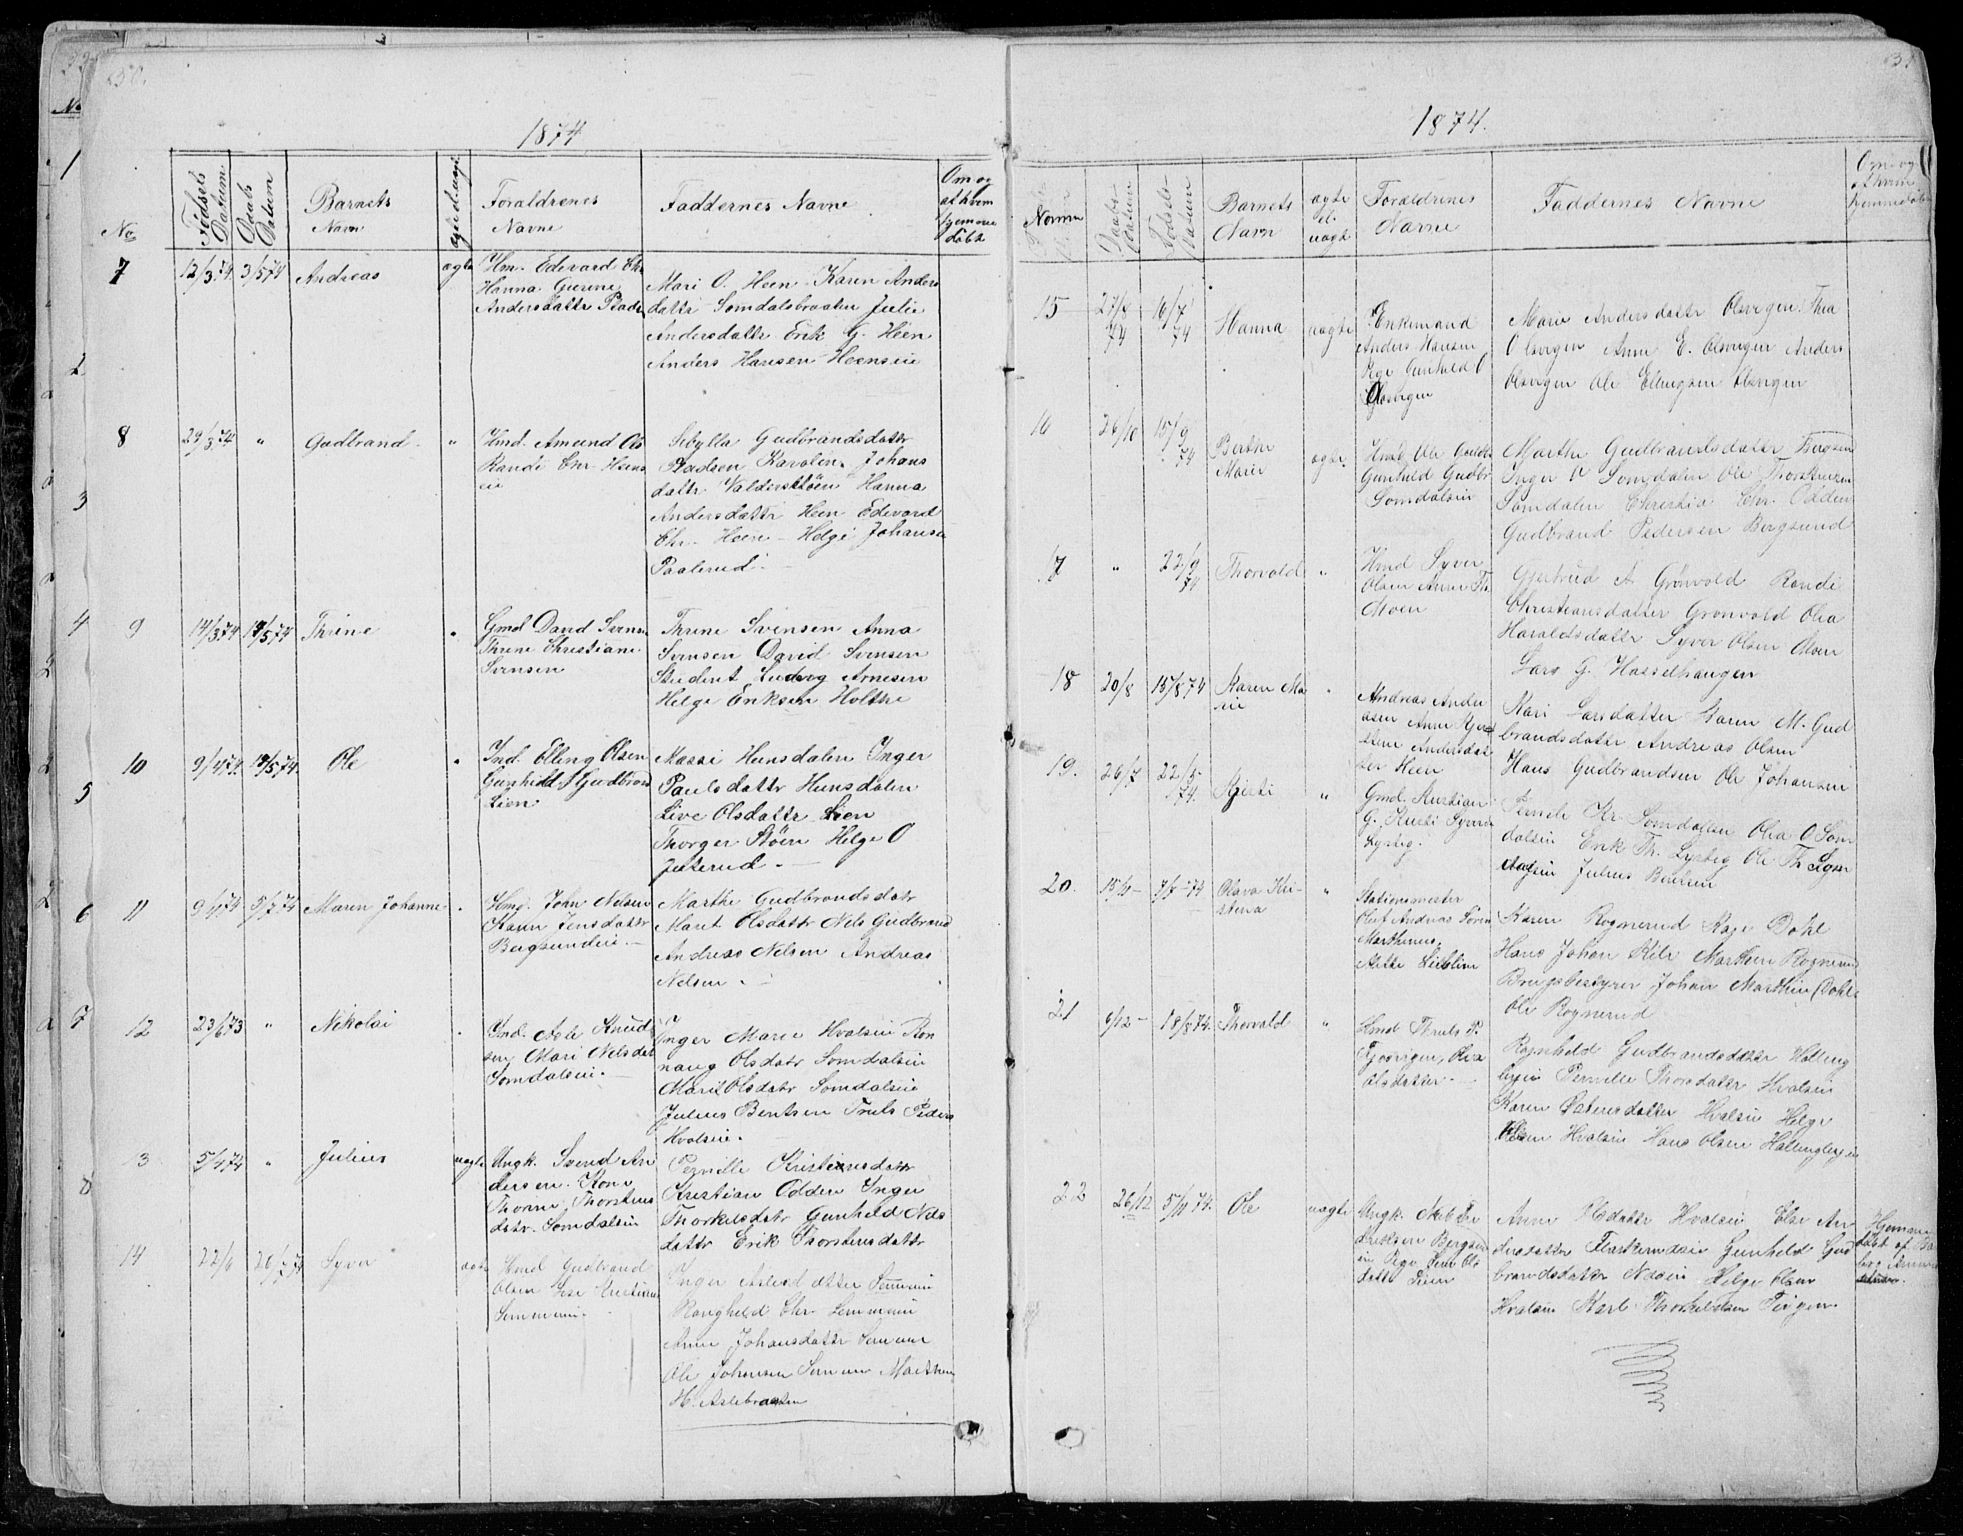 30.
1874
No
Fødsels Datum
Daabs Datum
Barnets Navn
Foraldrenes Navne
Faddernes Navne
Om og af hvem hjemme døbt
7
12/3 74
3/5 74
Andreas
ægte
Hm. Edevard Chr
Hanna
Andersdattr
Mari O. Heen Karen Anders
dattr Somdalsbraaten Julie
Andersdattr Erik G. Heen
Anders Hansen Heenseie
8
29/3 74
"
Gudbrand
"
Hmd. Amund Ols
Randi Chr Heens
eie
Sibylla Gudbrandsdattr
Pladsen Karoline Johans
dattr Valdersstøen Hanna
Andersdattr Heen Edevard
Chr. Heen - Helge Johansn
Paalerud
9
14/3 74
14/5 74
Thrine
"
Gmd David Svensn
Thrine Christiane
Svensen
Thrine Svensen Anna
Svensen David Svensen
Student Ludvig Arnesen
Helge Eriksen Holthe
10
9/4 74
14/5 74
Ole
"
Ind. Elling Olsen
Gunhild Gudbrands
Lien
Massi Hunsdalen Inger
Paulsdattr Hunsdalen
Live Olsdattr Lien
Thorger Støen Helge O
Juterud
11
9/4 74
5/7 74
Maren Johanne
"
Hmd. John Nelsen
Karen Jensdattr
Bergsundeie
Marthe Gudbrandsdatr
Marit Olsdattr Nels Gudbrand
Andreas Nelsen Andreas
Nelsen
12
23/6 73
"
Nikolai
"
Ind. Asle Knud
sen Mari Nelsdat
Somdalseie
Inger Marie Hvalseie Ron
naug Olsdatr Somdalseie
Marit Olsdatr Somdalseie
Julius Bentsen Truls Peders
Hvalseie
13
5/4 74
"
Julius
uægte
Ungk. Svend An
dersen Kone
Thorine Thorstens
datr. Somdalseie
Pernille Kristiansdatr
Kristian Odden Inger
Thorkelsdatr Gunhild Nels
dattr Erik Thorstensdattr
14
22/6
20/7 74
Syver
ægte
Hmd Gudbrand
Olsen Lise Kristians
Semmeneie
Inger Aslesdatter Semmeneie
Rangheld Chr. Semmeneie
Anne Johansdattr Semmen
Ole Johansen Semmen Marthin
H. Aslebraaten
31
1874.
Daabs-Datum
Fødsels-Datum
Barnets Navn
ægte el. uægte
Foraldrenes Navne
Faddernes Navne
Om og af hvem hjemmedøbt
15
27/8 74
16/7 74
Hanna
uægte
Enkemand
Anders Hansen
Pige Gunhild O
Olsvigen
Marie Andersdattr Olsvigen Thea
Olsvigen Anne E. Olsvigen Anders
Olsvigen Ole Ellingsen Olsvigen
16
26/10
15/9 74
Berthe
Marie
ægte
Hmd. Ole
Gunhild Gudbr
Somdalseie
Marthe Gudbrandsdatter Bergsun
Inger O Somdalen Ole Thorstensen
Somdalen Christia Chr. Odden
Gudbrand Pedersen Bergsund
17
"
22/9 74
Thorvald
"
Hmd Syver
Olsen Anne Th
Moen
Gjertrud A. Grønvold Randi
Christiansdatter Grønvold Olia
Haraldsdatter Syver Olsen Moen
Lars G. Hasselhaugen
18
20/8
15/8 74
Karen Ma
rie
"
Andreas Andre
asen Anne Kjer
stine Andersdat
ter Heen
Kari Larsdatter Karen M. Gud
brandsdattr Andreas Olsen
Hans Gudbrandsen Ole Johansen
19.
26/7
22/5 74.
Kjersti
"
Gmd. Kristian
G. Kirsti Syvers
Lysteig.
Pernele Kr. Somdalseie Olia O Som
dalseie Erik Th. Lysteig Ole Th Som
dalseie Julius Bentsen
20.
15/11
7/7 74
Olava Kri-
stena
"
Stationsmester
Olert Andreas Søren
Marthinus
Karen Rognerud Kaja Dohl
Hans Johan Kile Marthin Rognerud
Brugsbestyrer Johan Marthin Dohl
Ole Rognerud
21
6/12
18/8 74.
Thorvald
"
Hmd Thruls P.
Olia
Olsdatter
Rognheld Gudbrandsdatter Halling
byeie Pernille Thorsdatter Hvalseie
Karen Østensdatter Hvalseie Helge
Olsen Hvalseie Hans Olsen Hallingbyeie
22
26/12
5/11 74.
Ole
uægte
Ungk.
Anne Olsdatter Hvalseie Else An
dersdatter Gunhild Gud
brandsdatter Helge Olsen
Hvalseie Karl Thorkelsen
Hjemme
døbt af